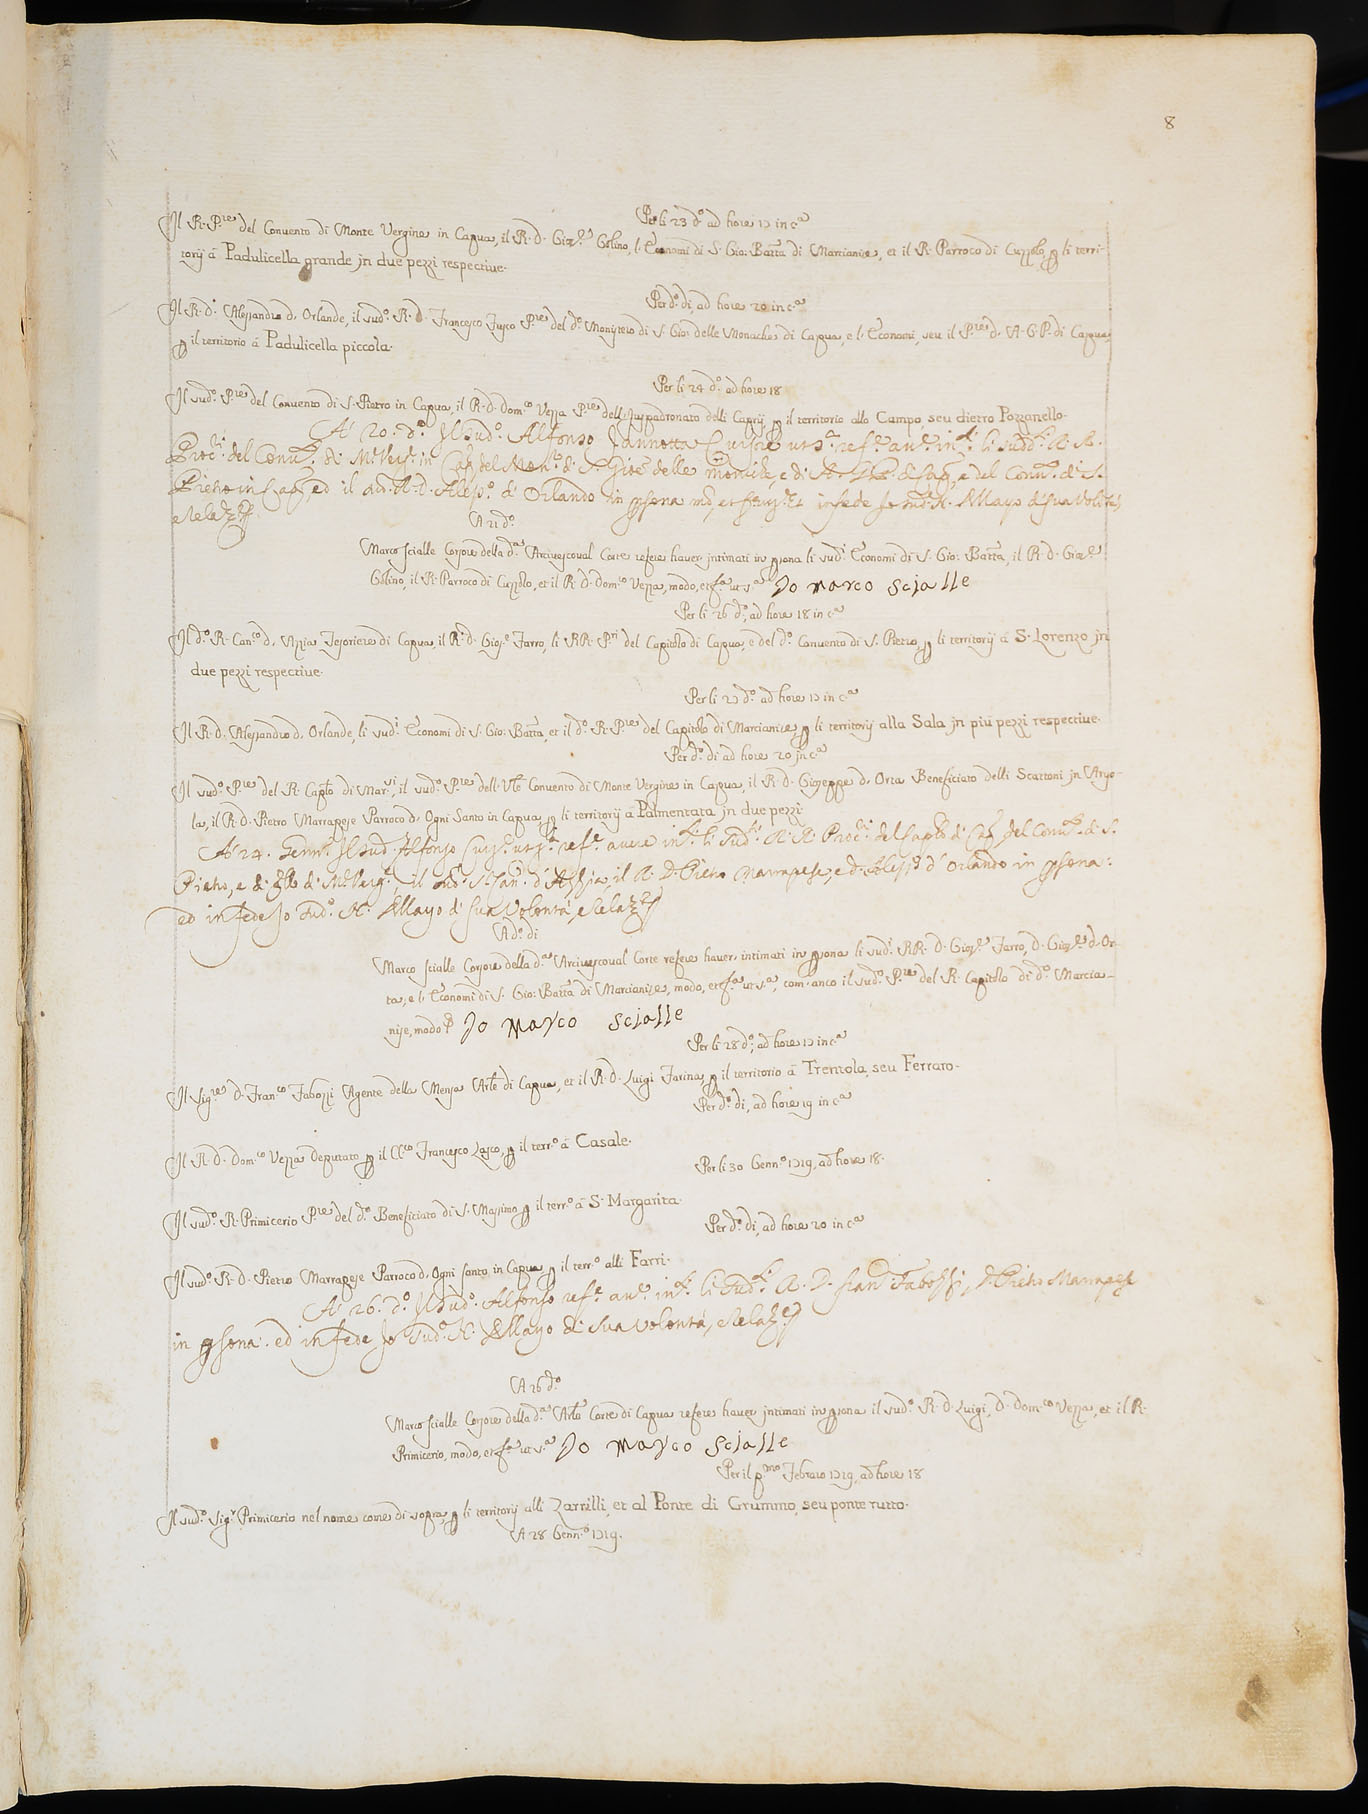 8
Per li 23 d.º ad hore 17 in c.ª
Il R. P.re del Convento di Monte Vergine in Capua, il R. d. Gios.e Golino, l. Economi di S. Gio: Batta di Marcianise, et il R. Parroco di Cuzzolo, p li terri-
torij á Padulicella grande jn due pezzi respective.
Per d.º di, ad hore 20 in c.ª
Il R. d. Alessandro d. Orlando, il sud.º R. d. Francesco Fusco P.re del d.º Monistero di S. Gio: delle Monache di Capua, e l. Economi, seu il P.re d. A. G. P. di Capua,
p il territorio á Padulicella piccola.
Per li 24 d.º ad hore 18
Il sud.º P.re del Convento di S. Pietro in Capua, il R. d. Dom.co Vezza P.re dell. Juspadronato delli Caprij p il territorio allo Campo, seu dietro Pozzanello.
A' 20. d.º Il sud.º Alfonso Jannotta Cursore ut s.ª ref.e av.e in.ti li sudd.i R. R.
Proc.ri del Conv.to di M.te Verg.e in Cap. del Mon.ro di S. Gio: delle Monache, e di A. G. P. di Cap. e del Conv.to di S.
Pietro in Cap. ed il R. D. Aless.º d' Orlando in psona in fede Io sud.º N. Mayo di sua volontá,
e relaz.e
A 21 d.º
Marco Scialle Corsore della d.ª Arcivescoval Corte refere haver intimati in psona li sud.i Economi di S. Gio: Batta, il R. d. Gios.e
Golino, il R. Parroco di Cuzzolo, et il R. D. Dom.co Vezza, modo, et f.ª ut s.ª Io Marco Scialle
Per li 26 d.º, ad hore 18 in c.ª
Il d.º R. Can.co d. Azzia Tesoriere di Capua, il R. d. Gios.e Farro, li RR. P.ri del Capitolo di Capua, e del d.º Convento di S. Pietro, p li territorij á S. Lorenzo jn
due pezzi respective.
Per li 27 d.º ad hore 17 in c.ª
Il R. d. Alessandro d. Orlando, li sud.i Economi di S. Gio: Batta, et il d.º R. P.re del Capitolo di Marcianise p li territorij alla Sala jn piu pezzi respective.
Per d.º di ad hore 20 jn c.ª
Il sud.º P.re del R. Caplo di Mar.si, il sud.º P.re dell. Convento di Monte Vergine in Capua, il R. d. Giuseppe d. Orta Beneficiato delli Scattoni jn
la, il R. d. Pietro Marrapese Parroco d. Ogni Santo in Capua p li territorij á Palmentata jn due pezzi
A' 24. Genn.º Il sud.º Alfonso Curs.e ut s.ª ref.e avere in.ti li sud.i R. R. Proc.ri del Caplo di Cap. del Conv.to di S.
Pietro, e di di M.te Verg.e, il sud.º Can. d' Azzia, il R. D. Pietro Marrapese, e d. Aless.º d' Orlando in psona:
ed in fede Io sud.º N. Mayo di sua volontá, e relaz.e
A d.º di
Marco Scialle Corsore della d.ª Arcivescoval Corte refere haver intimati in psona li sud.i RR. D. Gios.e Farro, D. Gios.e d. Or-
ta, e l. Economi di S. Gio: Batta di Marcianise, modo, et f.ª ut s.ª, com. anco il sud.º P.re del R. Capitolo di d.º Marcia-
nise, modo Io Marco Scialle
Per li 28 d.º, ad hore 17 in c.ª
Il Sig.re D. Fran.co Fabozzi Agente della Mensa Arle di Capua, et il R. D. Luigi Farina p il territorio á Trentola, seu Ferraro.
Per d.º di, ad hore 19 in c.ª
Il R. D. Dom.co Vezza Deputato p il Cl.co Francesco Lasco, p il terr.º á Casale.
Per li 30 Genn.º 1719, ad hore 18.
Il sud.º R. Primicerio P.re del d.º Beneficiato di S. Massimo p il terr.º á S. Margarita.
Per d.º di, ad hore 20 in c.ª
Il sud.º R. D. Pietro Marrapese Parroco d. Ogni Santo in Capua p il terr.º alli Farri.
A' 26. d.º Il sud.º Alfonso ref.e av.e in.ti li sud.i R. D. Fran.co Fabozzi, D. Pietro Marrapese
in psona. ed in fede Io sud.º N. Mayo di sua volontá, e relaz.e
A 26 d.º
Marco Scialle Corsore della d.ª Arle Corte di Capua refere haver jntimati in psona il sud.º R. D. Luigi, D. Dom.co Vezza, et il R.
Primicerio, modo, et f.ª ut s.ª Io Marco Scialle
Per il p.mo Febraro 1719, ad hore 18
Il sud.º Sig.r Primicerio nel nome come di sopra, p li territorij alli Zarrilli, et al Ponte di Grummo, seu ponte rutto.
A 28 Genn.º 1719.